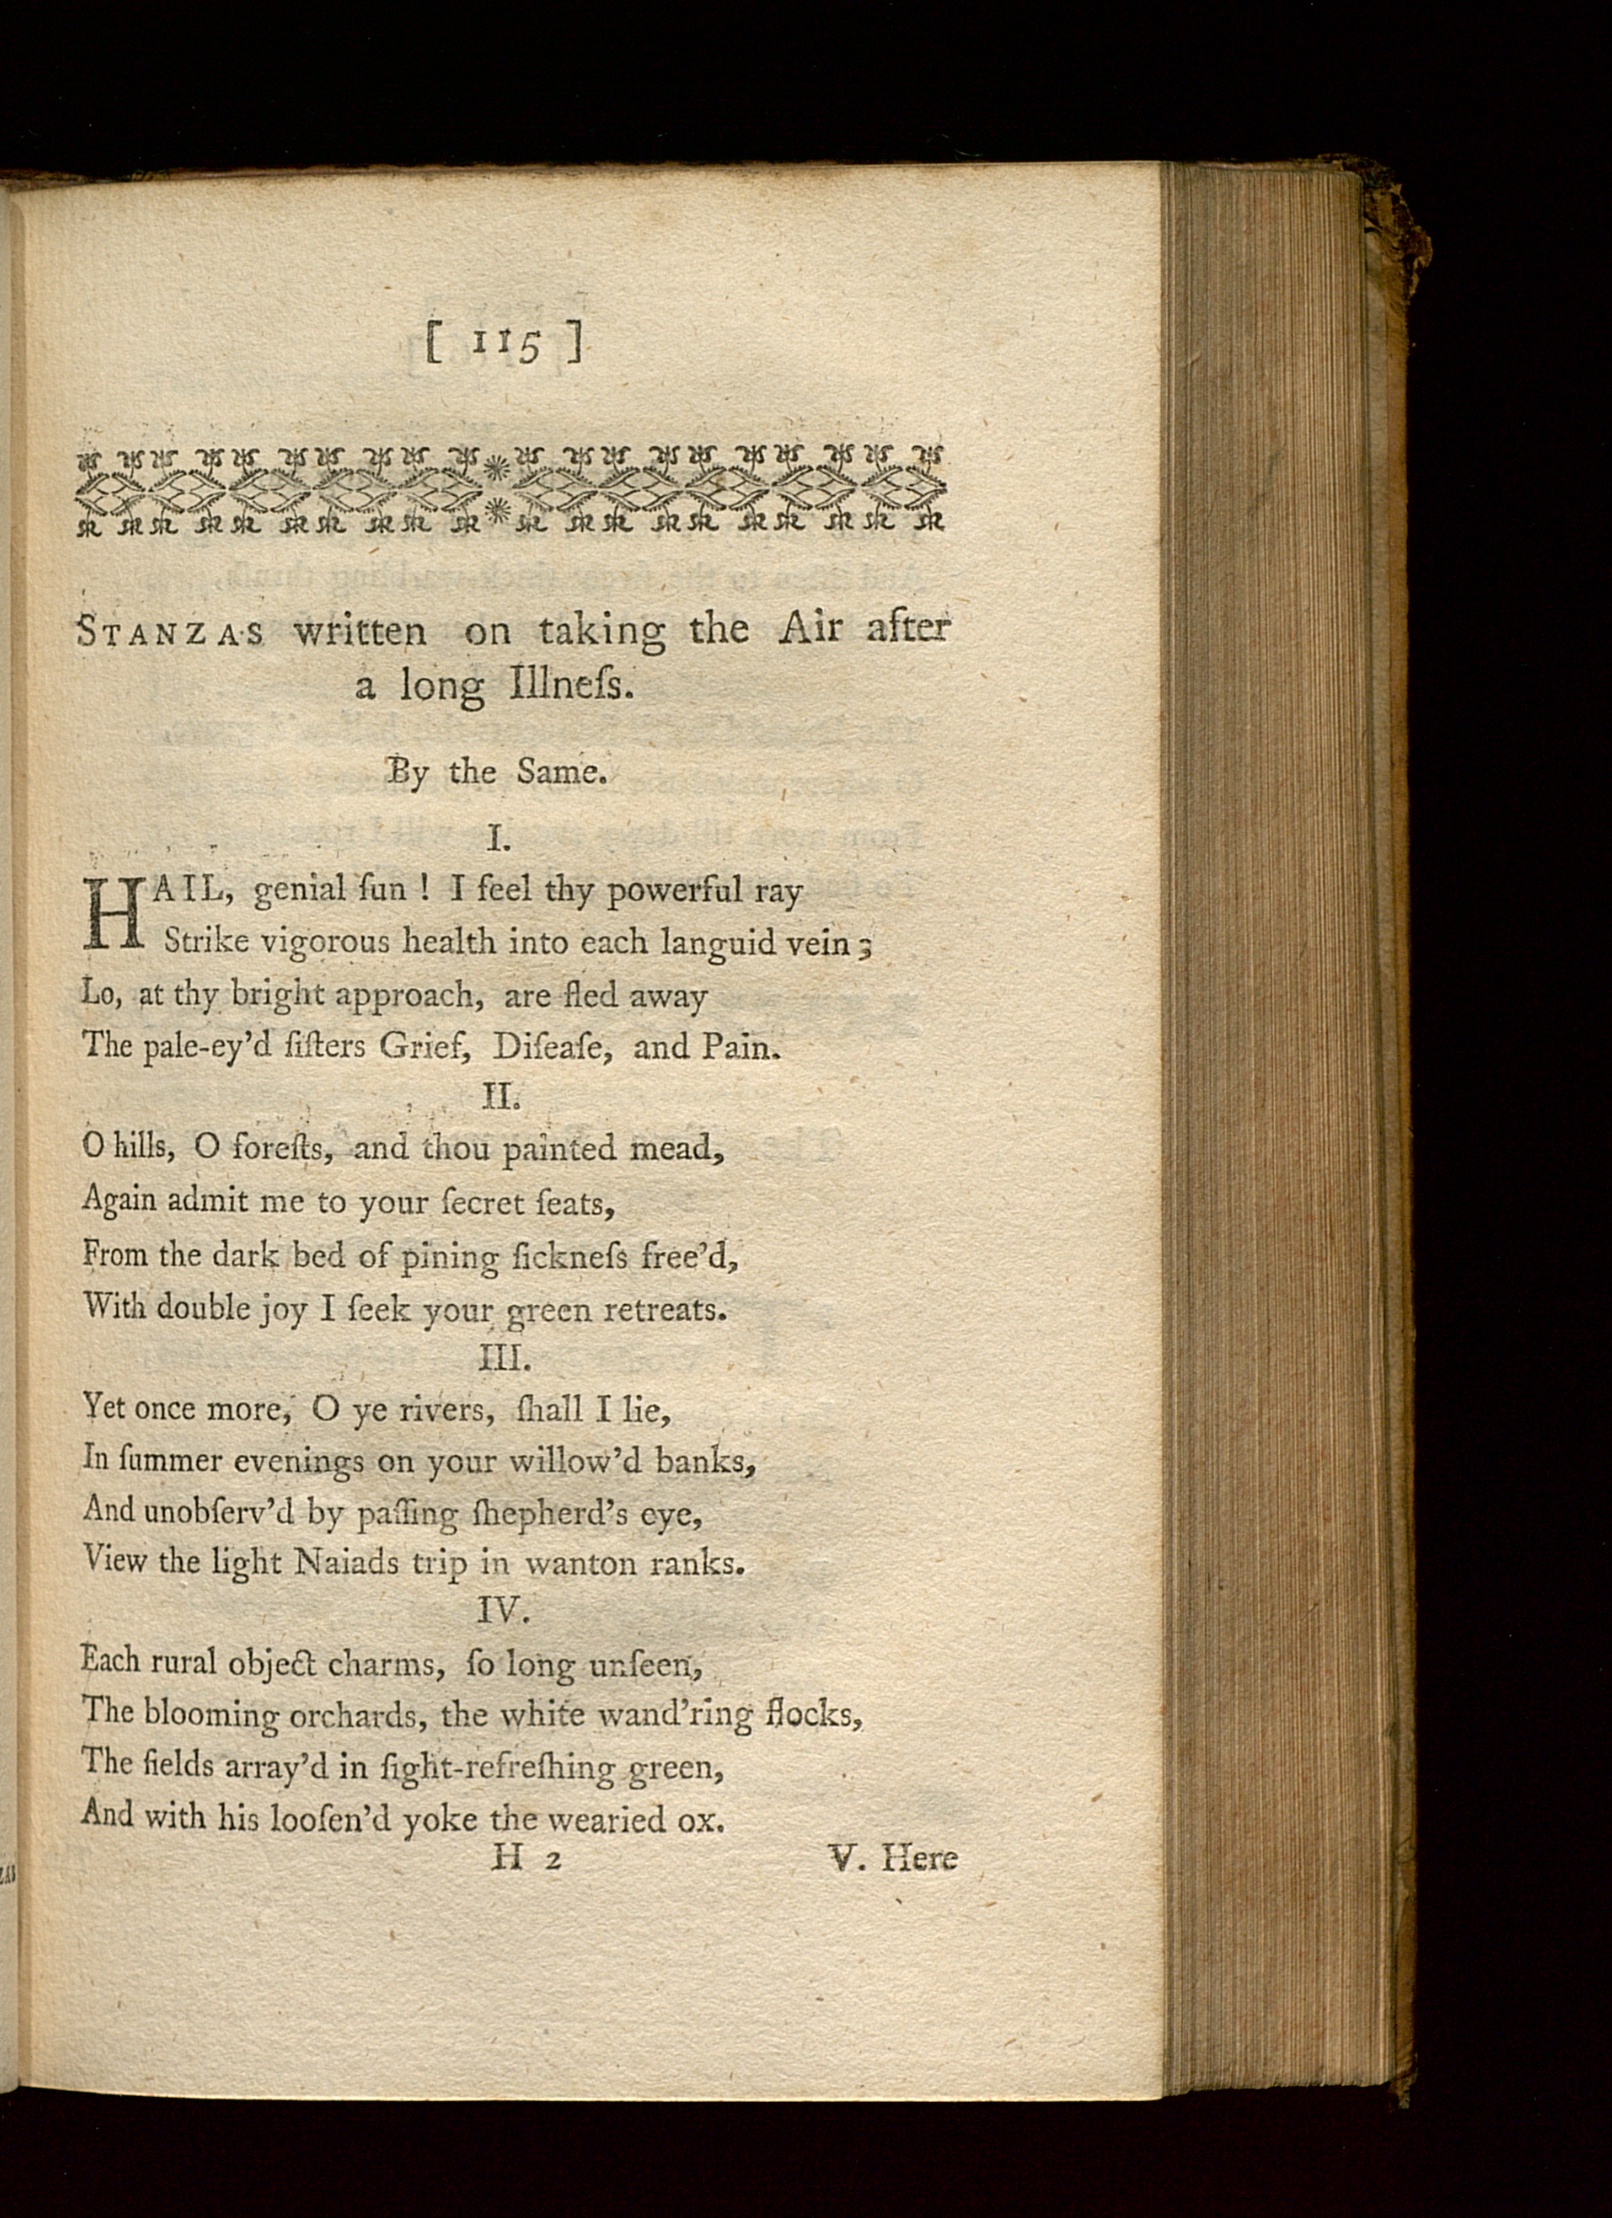 [ 115 ]
STANZAS written on taking the Air after
a long Illneſs.
By the Same.
I.
HAIL, genial ſun ! I feel thy powerful ray
Strike vigorous health into each languid vein ;
Lo, at thy bright approach, are fled away
The pale-ey'd ſiſters Grief, Diſeaſe, and Pain.
II.
O hills, O foreſts, and thou painted mead,
Again admit me to your ſecret ſeats,
From the dark bed of pining ſickneſs free'd,
With double joy I ſeek your green retreats.
III.
Yet once more, O ye rivers, ſhall I lie,
In ſummer evenings on your willow'd banks,
And unobſerv'd by paſſing ſhepherd's eye,
View the light Naiads trip in wanton ranks.
IV.
Each rural object charms, ſo long unſeen,
The blooming orchards, the white wand'ring flocks,
The fields array'd in ſight-refreſhing green,
And with his looſen'd yoke the wearied ox.
H 2 V. Here